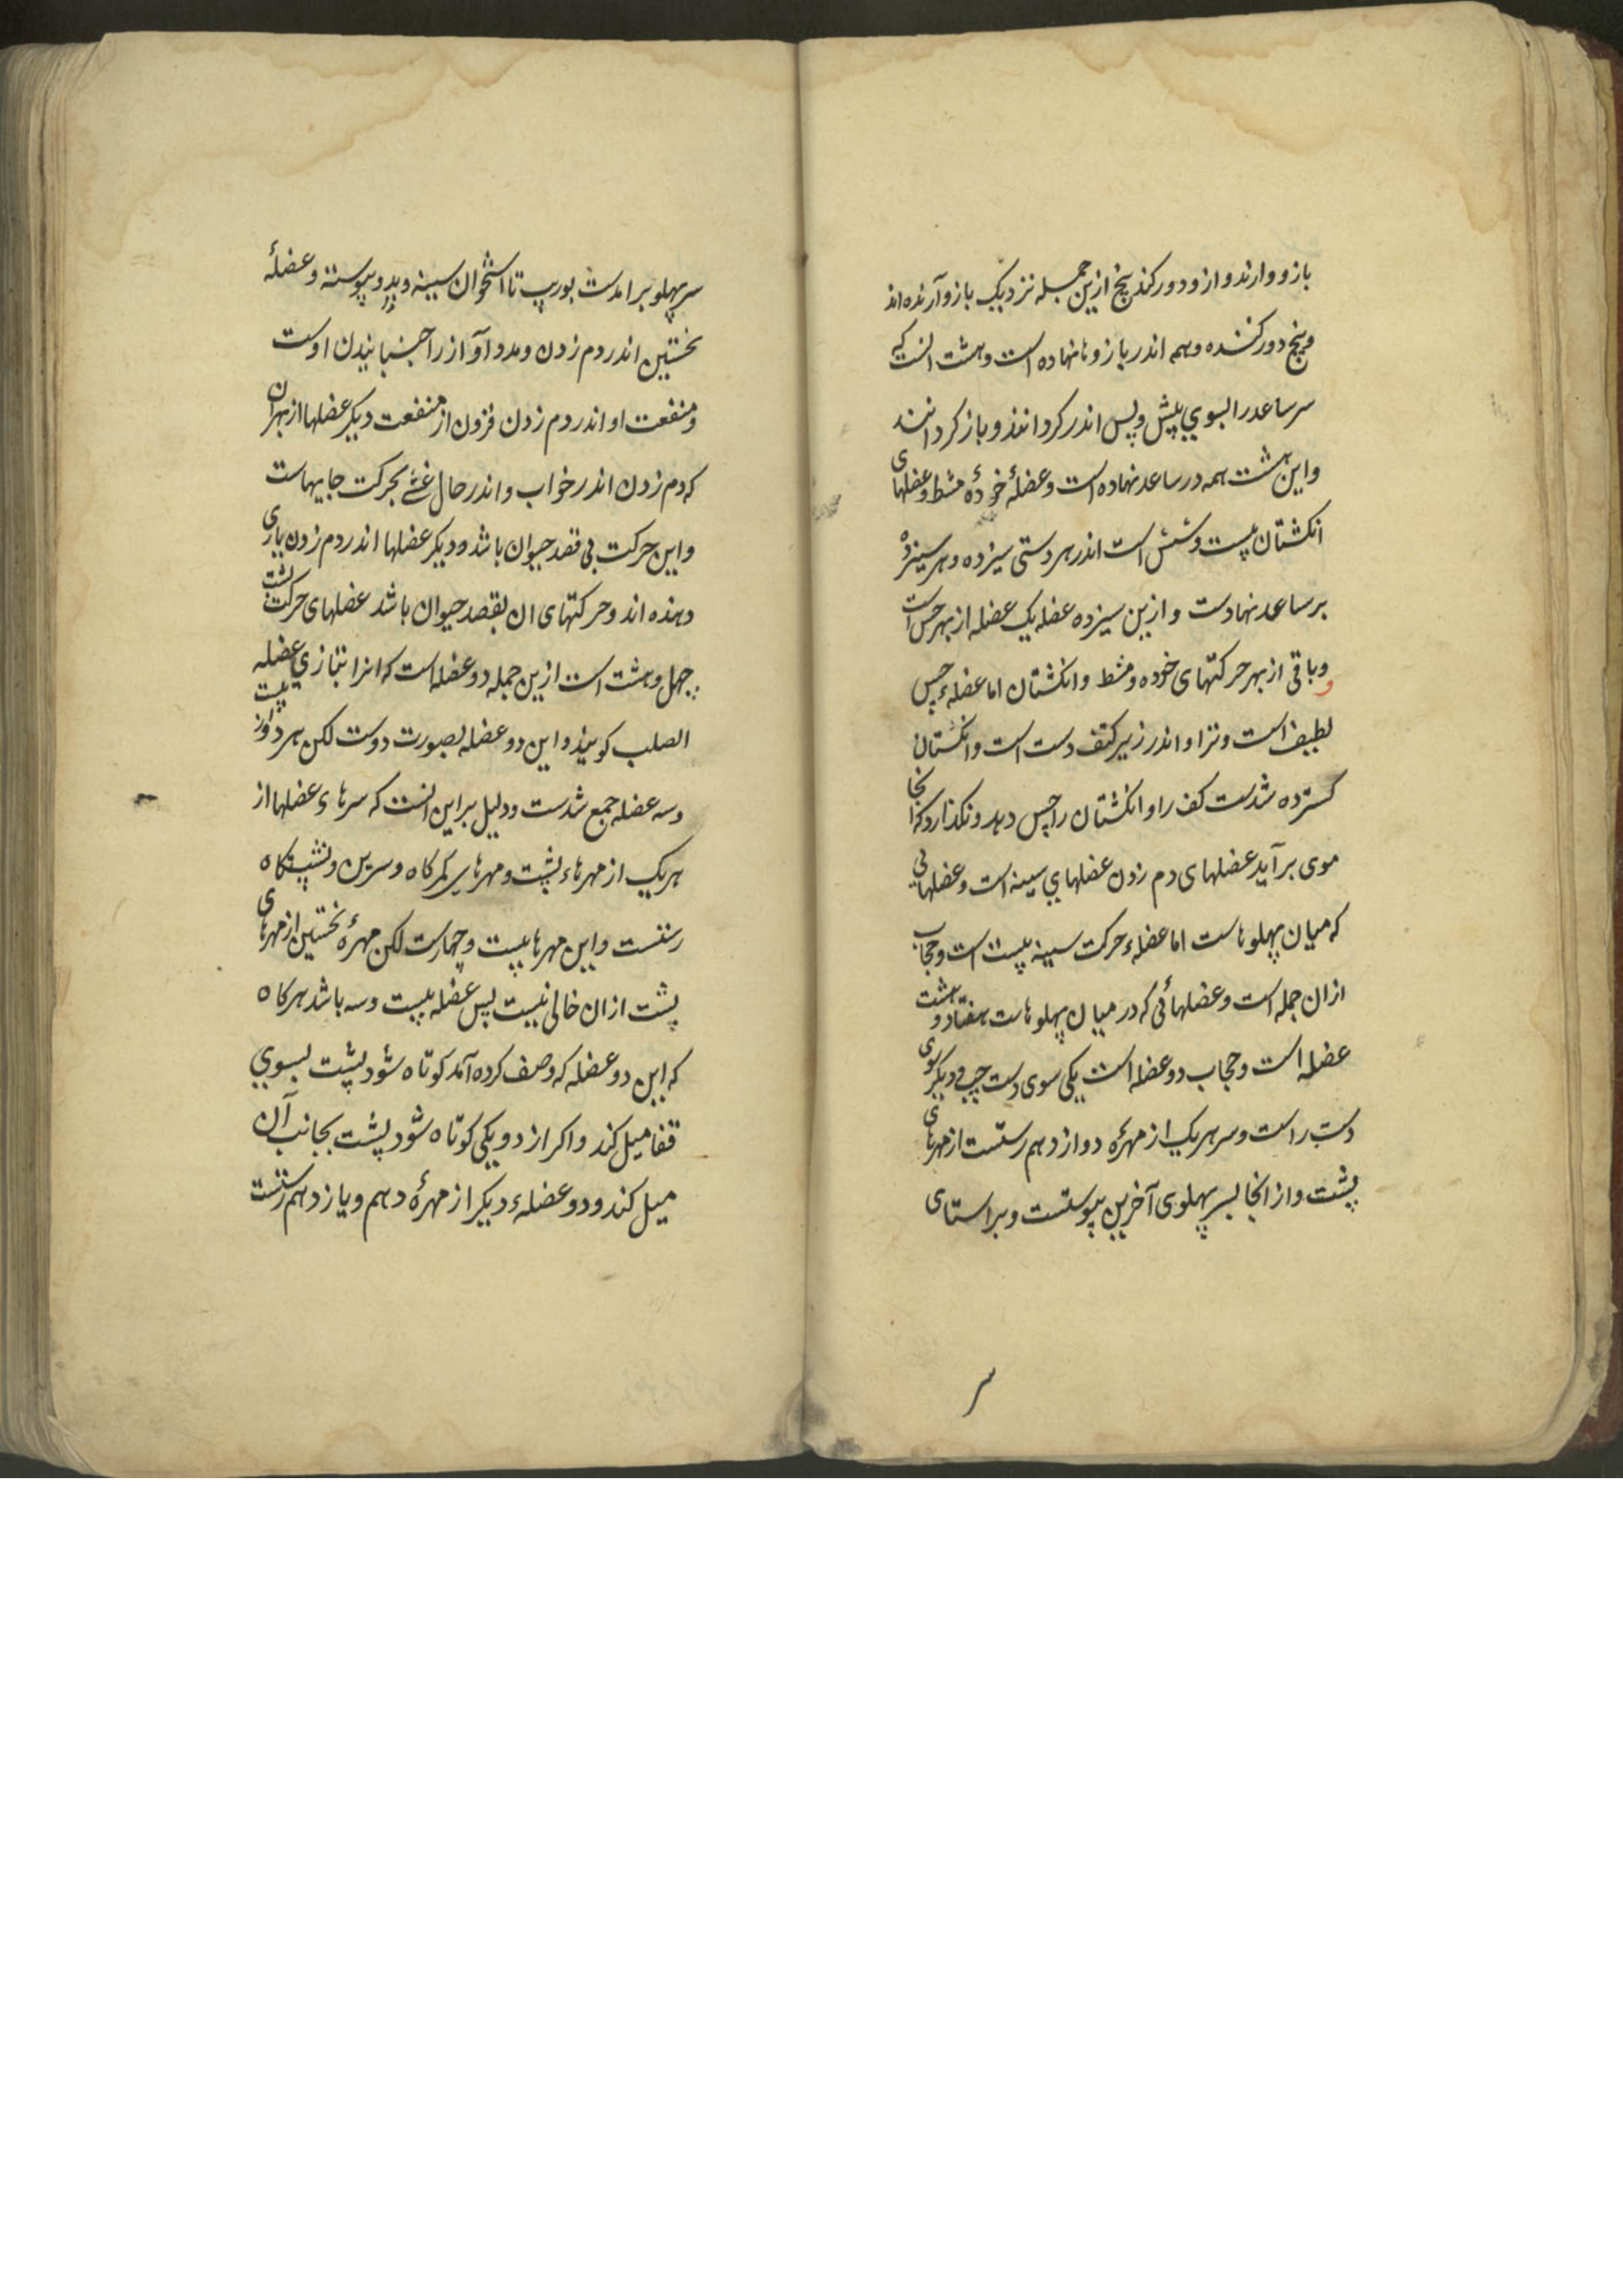 بازو وارند و از و دور کند پنج ازین جمله نزدیک بازو آرنده اند
و پنج دور کننده و همه اندر بازو ها نهاده است و هشت انست که
سر ساعد را بسوي پیش و پس اندر کردانند و باز کردانند
و این هشت همه در ساعد نهاده است و عضلهٔ خردهٔ مشط و عضلهای
انکشتان بیست و شش است اندر هر دستی سیزده و هر سیزده
بر ساعد نهادست و ازین سیزده عضله یک عضله از بهر حس است
و باقی از بهر حرکتهای خوده و مشط و انکشتان اما عضلهء حس
لطیف است و نزا و اندر زیر کتف دست است و انکشتان
کسترده شدست کف را و انکشتان را حس دهد و نکذارد که انجا
موی برآید عضلهای دم زدن عضلهاي سینه است و عضلهائی
که میان پهلوهاست اما عضلهء حرکت سینه بیست است و حجاب
ازان جمله است و عضلهائی که در میان پهلوهاست هفتاد و هشت
عضله است و حجاب دو عضله است یکی سوی دست چپ و دیکر سوی
دست راست و سر هر یک از مهرهٔ دوازدهم رستست از مهرهای
پشت و از انجا بسر پهلوی آخرین پیوستست و براستای
سر
سر پهلو برامدست بوریب تا استخوان سینه و بدو پیوسته و عضلهٔ
نخستین اندر دم زدن و مدد آواز را جنبانیدن اوست
و منفعت او اندر دم زدن فزون از منفعت دیکر عضلها از بهر ان
که دم زدن اندر خواب و اندر حال غشی بحرکت حجابهاست
و این حرکت بی قصد حیوان باشد و دیکر عضلها اندر دم زدن یاری
دهنده اند و حرکتهای ان بقصد حیوان باشد عضلهای حرکت پشت
چهل و هشت است ازین جمله دو عضله است که انرا بتازي عضله
الصلب کویند و این دو عضله بصورت دوست لکن هر دو از بیست
و سه عضله جمع شدست و دلیل براین انست که سرهاء عضلها از
هر یک از مهرهاء پشت و مهرهای کمرکاه و سرین و نشستکاه
رستست و این مهرها بیست و چهارست لکن مهرهٔ نخستین از مهرهای
پشت ازان خالی نیست پس عضله بیست و سه باشد هرکاه
که این دو عضله که وصف کرده آمد کوتاه شود پشت بسوي
قفا میل کند و اکر از دو یکی کوتاه شود پشت بجانب آن
میل کند و دو عضلهء دیکر از مهرهٔ دهم و یازدهم رستست